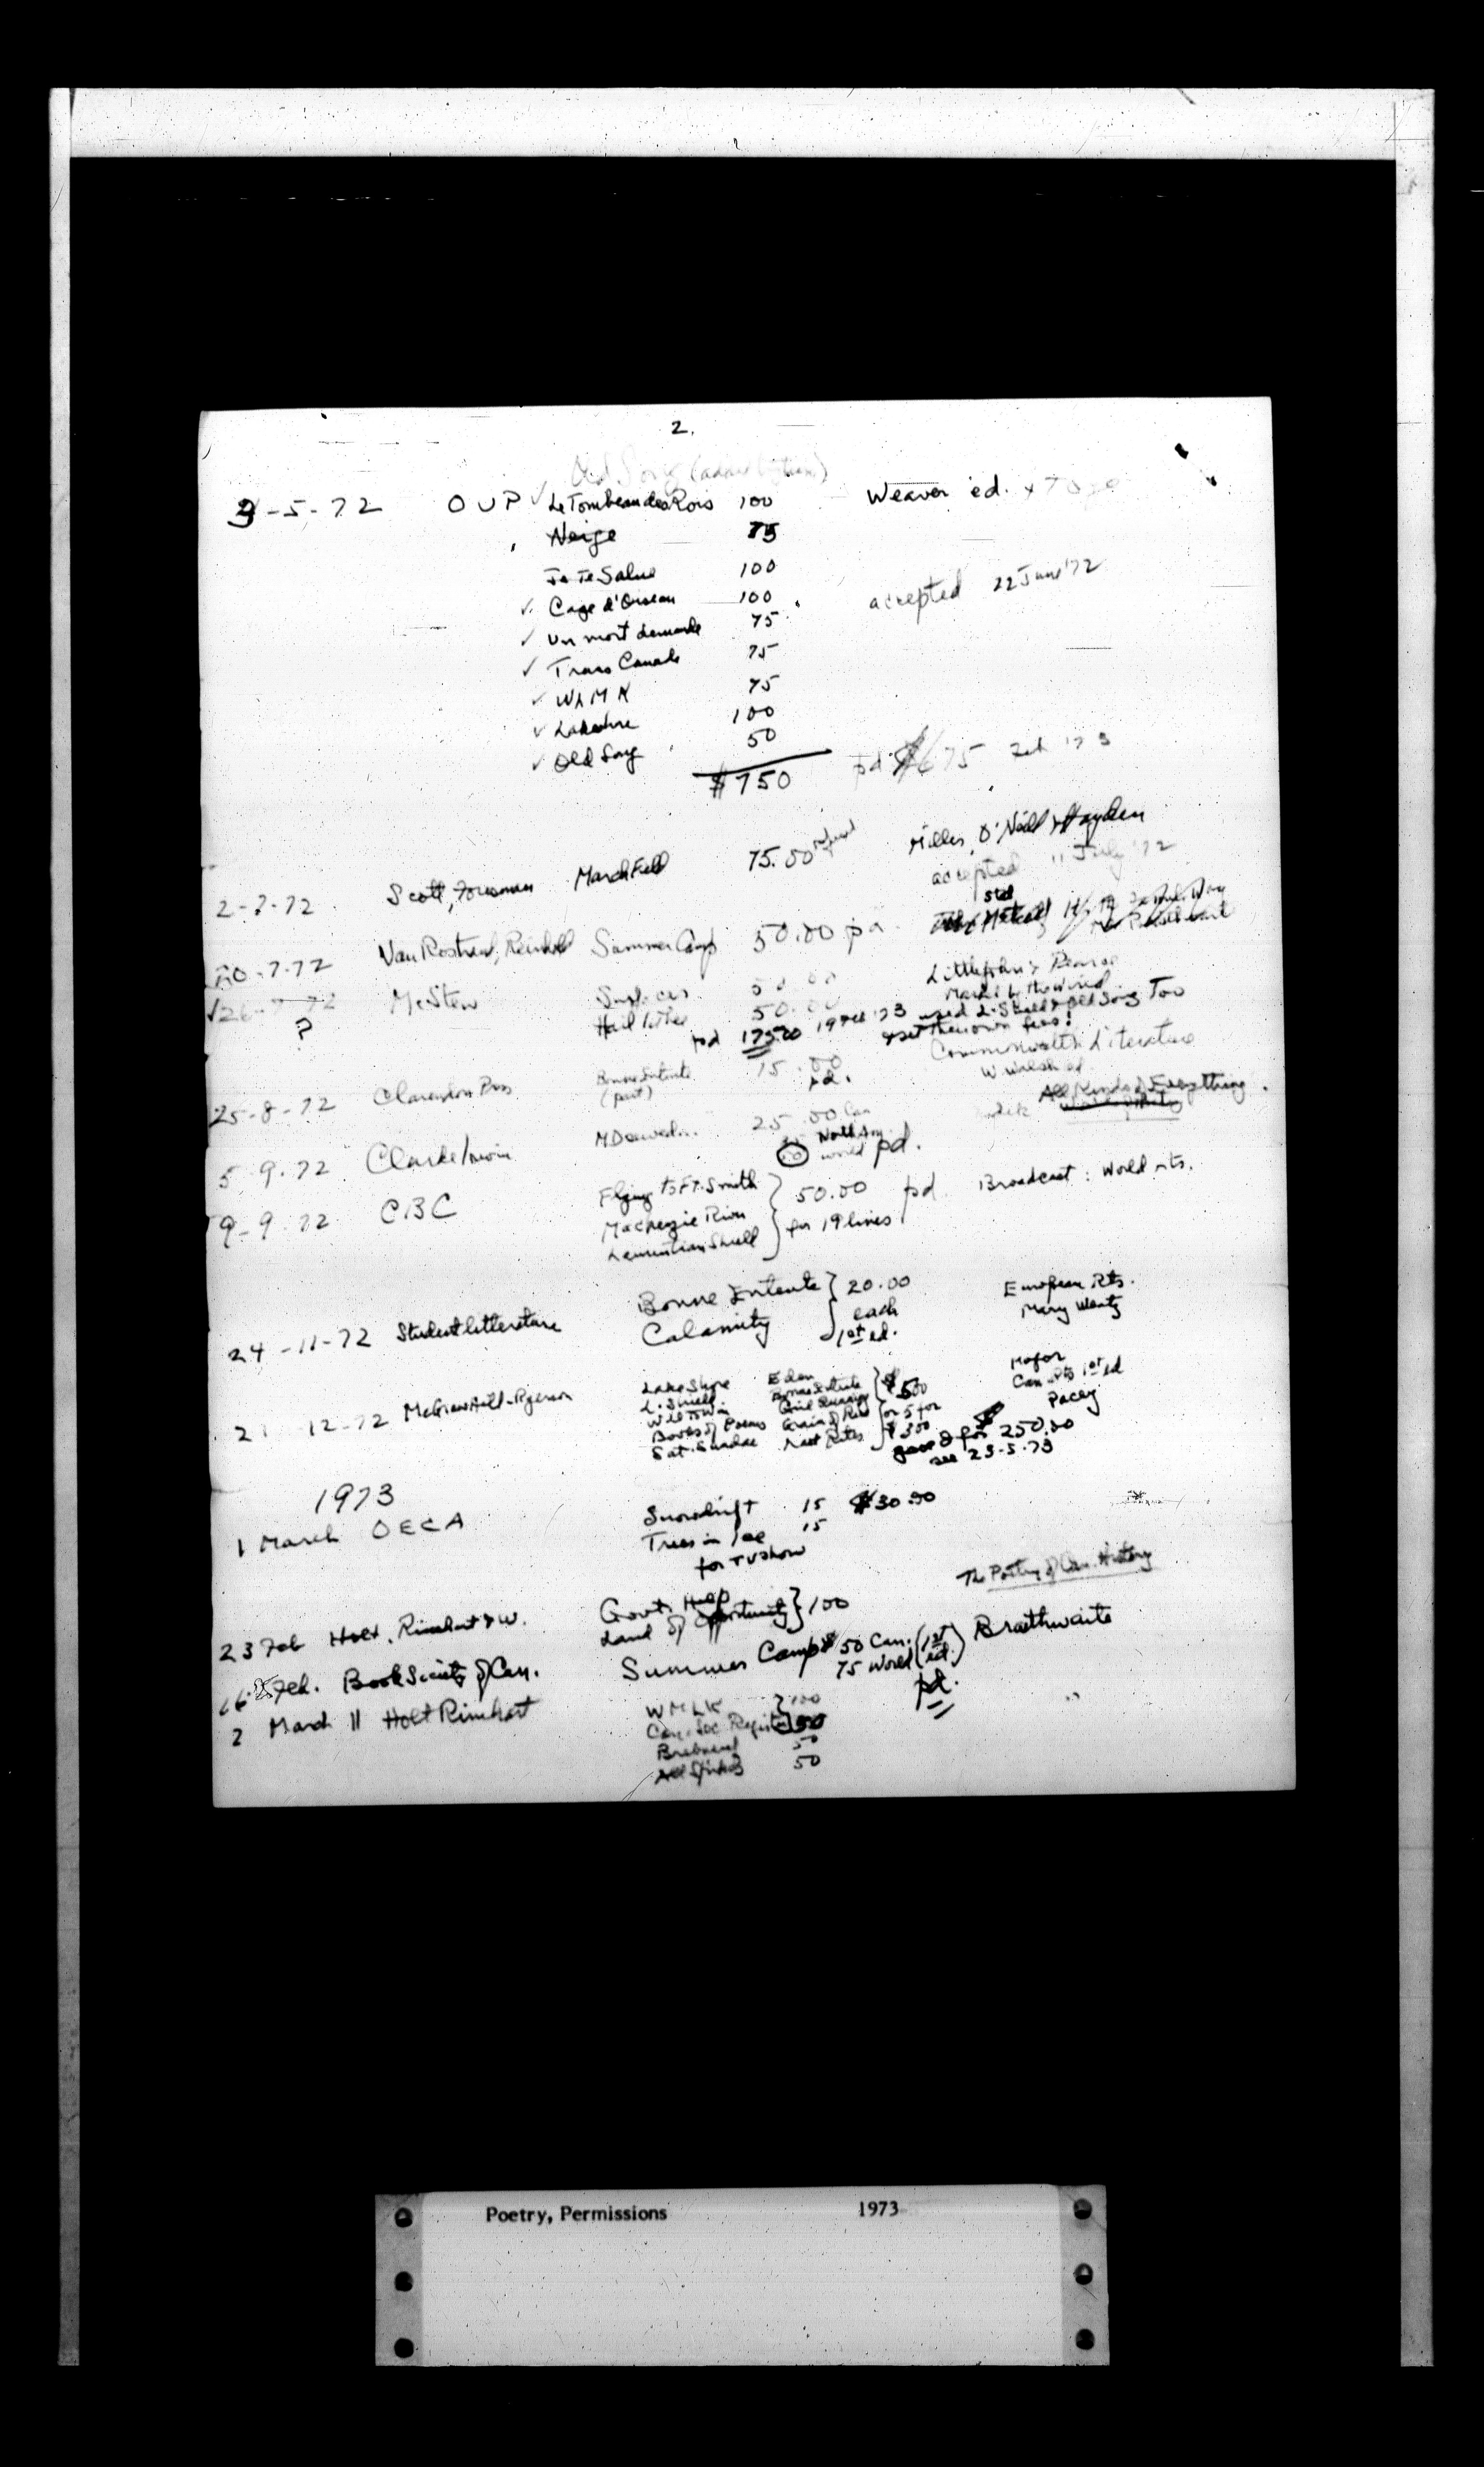 2.
Old Song
3-5-72 OUP ✓ Le Tombeau des Rois 100 Weaver ed. + Toye
Neige 75
Je Te Salue 100
✓ Cage d'Oiseau 100 accepted 22 June '72
✓ Un mort demande 75
✓ Trans Canada 75
✓ WLMK 75
✓ Lakeshore 100
✓ Old Song 50
$750 pd. $675 Feb '73
2-7-72 Scott, Foresman March Field 75.00 refused Miller, O'Neill & Hayden
accepted 11 July '72
20-7-72 Van Nostrand, Reinhold Summer Camp 50.00 pd. std
✓26-7-72 McStew Surfaces 50.00 Littlejohn & Pearce
? Hail 50.00 Marked by the Wind
pd 175.00 19 Feb '73 used L. Shield & Old Song Too
& set their own fees!
25-8-72 Clarendon Press Bonne Entente 15.00 Commonwealth Literature
(part) pd. W. Walsh ed
5-9-72 Clarke Irwin 25.00 Can All Kinds of Everything.
North Am.
world pd.
9-9-72 CBC Flying to Ft. Smith 50.00 pd Broadcast: World rts.
Mackenzie River for 19 lines
Laurentian Shield
24-11-72 Studentlitteratur Bonne Entente 20.00 European Rts.
Calamity each Mary Wentz
1st ed.
2 12-72 McGraw Hill-Ryerson Lake Shore Eden $500 Major
L. Shield Bonne Entente Can. rts 1st ed
Will to Win or 5 for Pacey
Books of Poems Grain of Rice $300
Sat. Sundae Last Rites gave 3 for $250.00
see 23-5-73
1973
1 March OECA Snowdrift 15 $30.00
Trees in Ice 15
for TV show
The Poetry of Can. History
23 Feb Holt, Rinehart & W. Govt. Help 100
Land of Opportunity
16 Feb. Book Society of Can. Summer Camp 50 Can. (1st ed.) Braithwaite
75 World pd.
2 March 11 Holt Rinehart WLMK 100
Can. Soc. Register 50
Brebeuf 50
All Spikes 50
Poetry, Permissions 1973